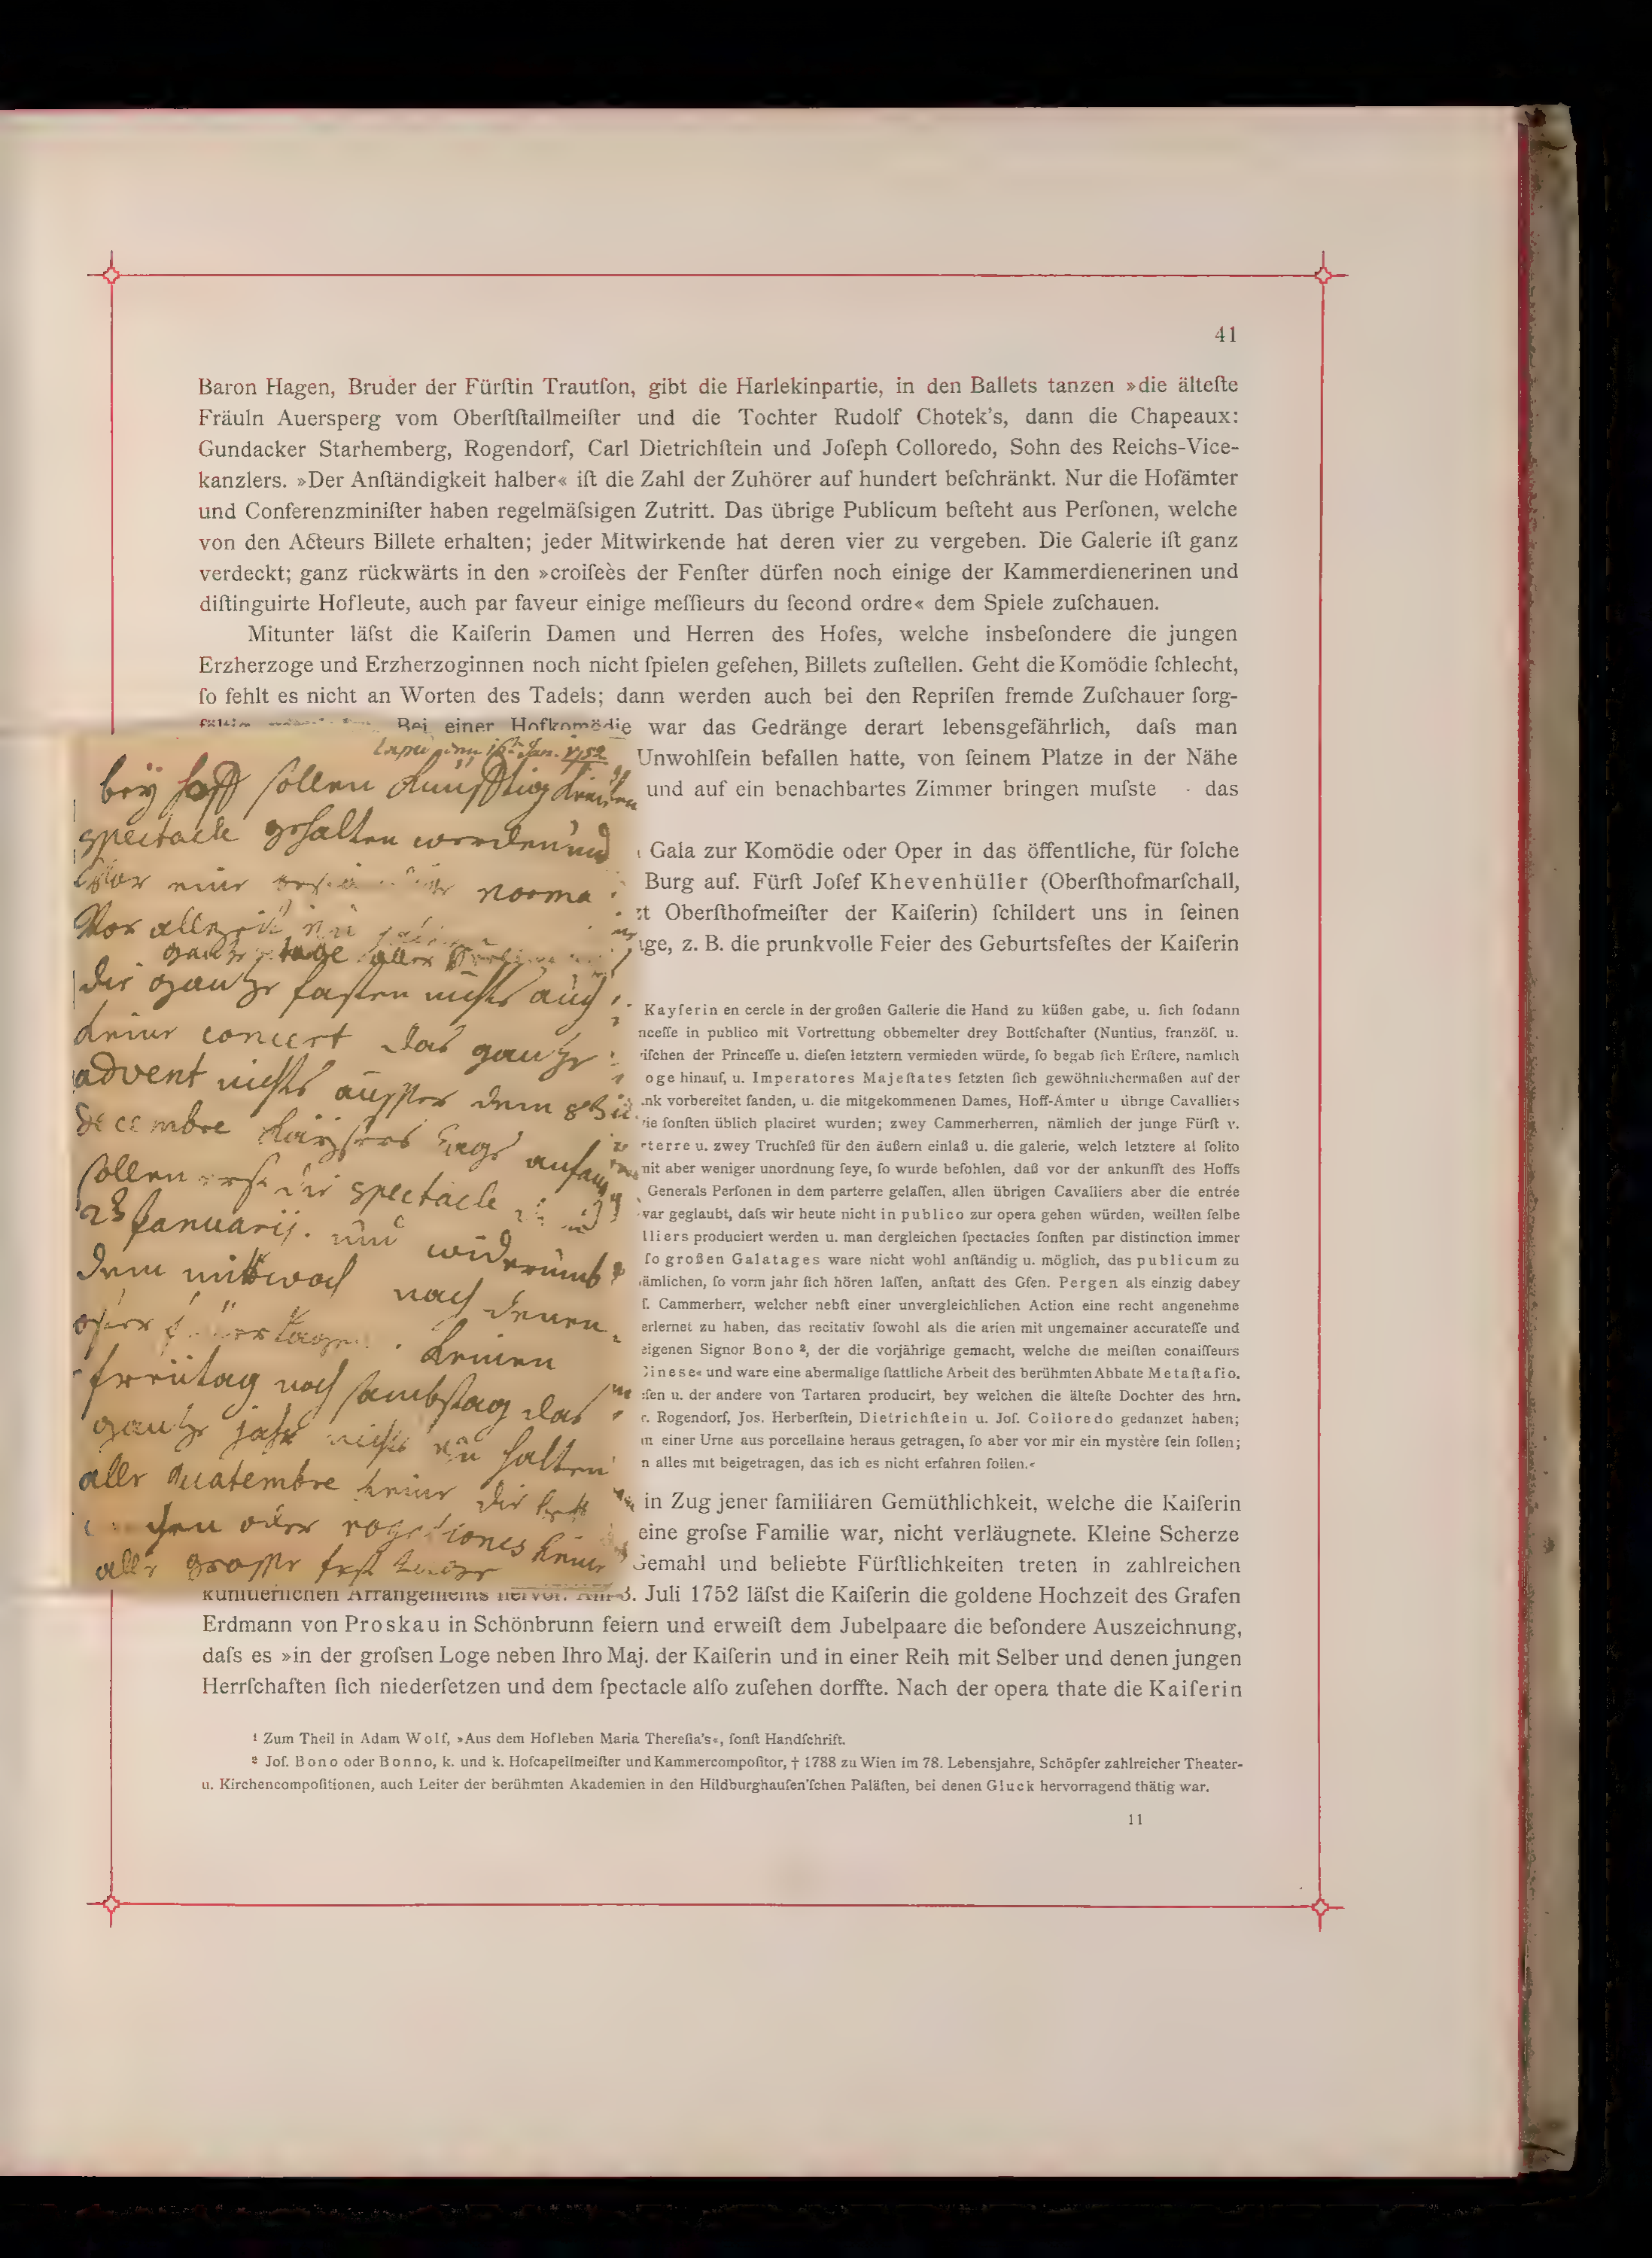 41
Baron Hagen, Bruder der Fürſtin Trautſon, gibt die Harlekinpartie, in den Ballets tanzen »die älteſte
Fräuln Auersperg vom Oberſtſtallmeiſter und die Tochter Rudolf Chotek's, dann die Chapeaux:
Gundacker Starhemberg, Rogendorf, Carl Dietrichſtein und Joſeph Colloredo, Sohn des Reichs-Vice-
kanzlers. »Der Anſtändigkeit halber« iſt die Zahl der Zuhörer auf hundert beſchränkt. Nur die Hofämter
und Conferenzminiſter haben regelmäſsigen Zutritt. Das übrige Publicum beſteht aus Perſonen, welche
von den Acteurs Billete erhalten; jeder Mitwirkende hat deren vier zu vergeben. Die Galerie iſt ganz
verdeckt; ganz rückwärts in den »croiſeès der Fenſter dürfen noch einige der Kammerdienerinen und
diſtinguirte Hofleute, auch par faveur einige meſſieurs du ſecond ordre« dem Spiele zuſchauen.
Mitunter läſst die Kaiſerin Damen und Herren des Hofes, welche insbeſondere die jungen
Erzherzoge und Erzherzoginnen noch nicht ſpielen geſehen, Billets zuſtellen. Geht die Komödie ſchlecht,
ſo fehlt es nicht an Worten des Tadels; dann werden auch bei den Repriſen fremde Zuſchauer ſorg-
Bei einer Hofkomödie war das Gedränge derart lebensgefährlich, daſs man
Unwohlſein befallen hatte, von ſeinem Platze in der Nähe
und auf ein benachbartes Zimmer bringen muſste - das
Gala zur Komödie oder Oper in das öffentliche, für ſolche
Burg auf. Fürſt Joſef Khevenhüller (Oberſthofmarſchall,
Oberſthofmeiſter der Kaiſerin) ſchildert uns in ſeinen
z. B. die prunkvolle Feier des Geburtsfeſtes der Kaiſerin
den 16 Jan. 1752
beÿ hoff sollen künfftig keine
spectacle gehalten werden und
eine norma
Vor allezeit
gantze tage aller
die gantze fasten nichts auch
keine concert das gantze
advent nichts ausser dem
decembre kaÿsers tags anfang
sollen erst die spectacle
januarij. und widerumb
dem mittwoch nach denen
oster keinen
freÿtag noch sambstag das
gantze jahr nichts zu halten
alle quatembre keine die
oder rogationes keine
alle grosse fest
Kayſerin en cercle in der großen Gallerie die Hand zu küßen gabe, u. ſich ſodann
in publico mit Vortrettung obbemelter drey Bottſchafter (Nuntius, franzöſ. u.
der Princeſſe u. dieſen letztern vermieden würde, ſo begab ſich Erſtere, namlich
hinauf, u. Imperatores Majeſtates ſetzten ſich gewöhnlichermaßen auf der
vorbereitet fanden, u. die mitgekommenen Dames, Hoff-Ämter u übrige Cavalliers
ſonſten üblich placiret wurden; zwey Cammerherren, nämlich der junge Fürſt v.
u. zwey Truchſeß für den äußern einlaß u. die galerie, welch letztere al ſolito
aber weniger unordnung ſeye, ſo wurde befohlen, daß vor der ankunfft des Hoffs
Generals Perſonen in dem parterre gelaſſen, allen übrigen Cavalliers aber die entrée
geglaubt, daſs wir heute nicht in publico zur opera gehen würden, weillen ſelbe
produciert werden u. man dergleichen ſpectacles ſonſten par distinction immer
ſo großen Galatages ware nicht wohl anſtändig u. möglich, das publicum zu
ſo vorm jahr ſich hören laſſen, anſtatt des Gfen. Pergen als einzig dabey
Cammerherr, welcher nebſt einer unvergleichlichen Action eine recht angenehme
erlernet zu haben, das recitativ ſowohl als die arien mit ungemainer accurateſſe und
eigenen Signor Bono ², der die vorjährige gemacht, welche die meiſten conaiſſeurs
und ware eine abermalige ſtattliche Arbeit des berühmten Abbate Metaſtaſio.
u. der andere von Tartaren producirt, bey welchen die älteſte Dochter des hrn.
Rogendorf, Jos. Herberſtein, Dietrichſtein u. Joſ. Colloredo gedanzet haben;
einer Urne aus porcellaine heraus getragen, ſo aber vor mir ein mystère ſein ſollen;
alles mit beigetragen, das ich es nicht erfahren ſollen.«
in Zug jener familiären Gemüthlichkeit, welche die Kaiſerin
eine groſse Familie war, nicht verläugnete. Kleine Scherze
Gemahl und beliebte Fürſtlichkeiten treten in zahlreichen
künſtleriſchen Arrangements hervor. Am 8. Juli 1752 läſst die Kaiſerin die goldene Hochzeit des Grafen
Erdmann von Proskau in Schönbrunn feiern und erweiſt dem Jubelpaare die beſondere Auszeichnung,
daſs es »in der groſsen Loge neben Ihro Maj. der Kaiſerin und in einer Reih mit Selber und denen jungen
Herrſchaften ſich niederſetzen und dem ſpectacle alſo zuſehen dorffte. Nach der opera thate die Kaiſerin
¹ Zum Theil in Adam Wolf, »Aus dem Hofleben Maria Thereſia's«, ſonſt Handſchrift.
² Joſ. Bono oder Bonno, k. und k. Hofcapellmeiſter und Kammercompoſitor, † 1788 zu Wien im 78. Lebensjahre, Schöpfer zahlreicher Theater-
u. Kirchencompoſitionen, auch Leiter der berühmten Akademien in den Hildburghauſen'ſchen Paläſten, bei denen Gluck hervorragend thätig war.
11